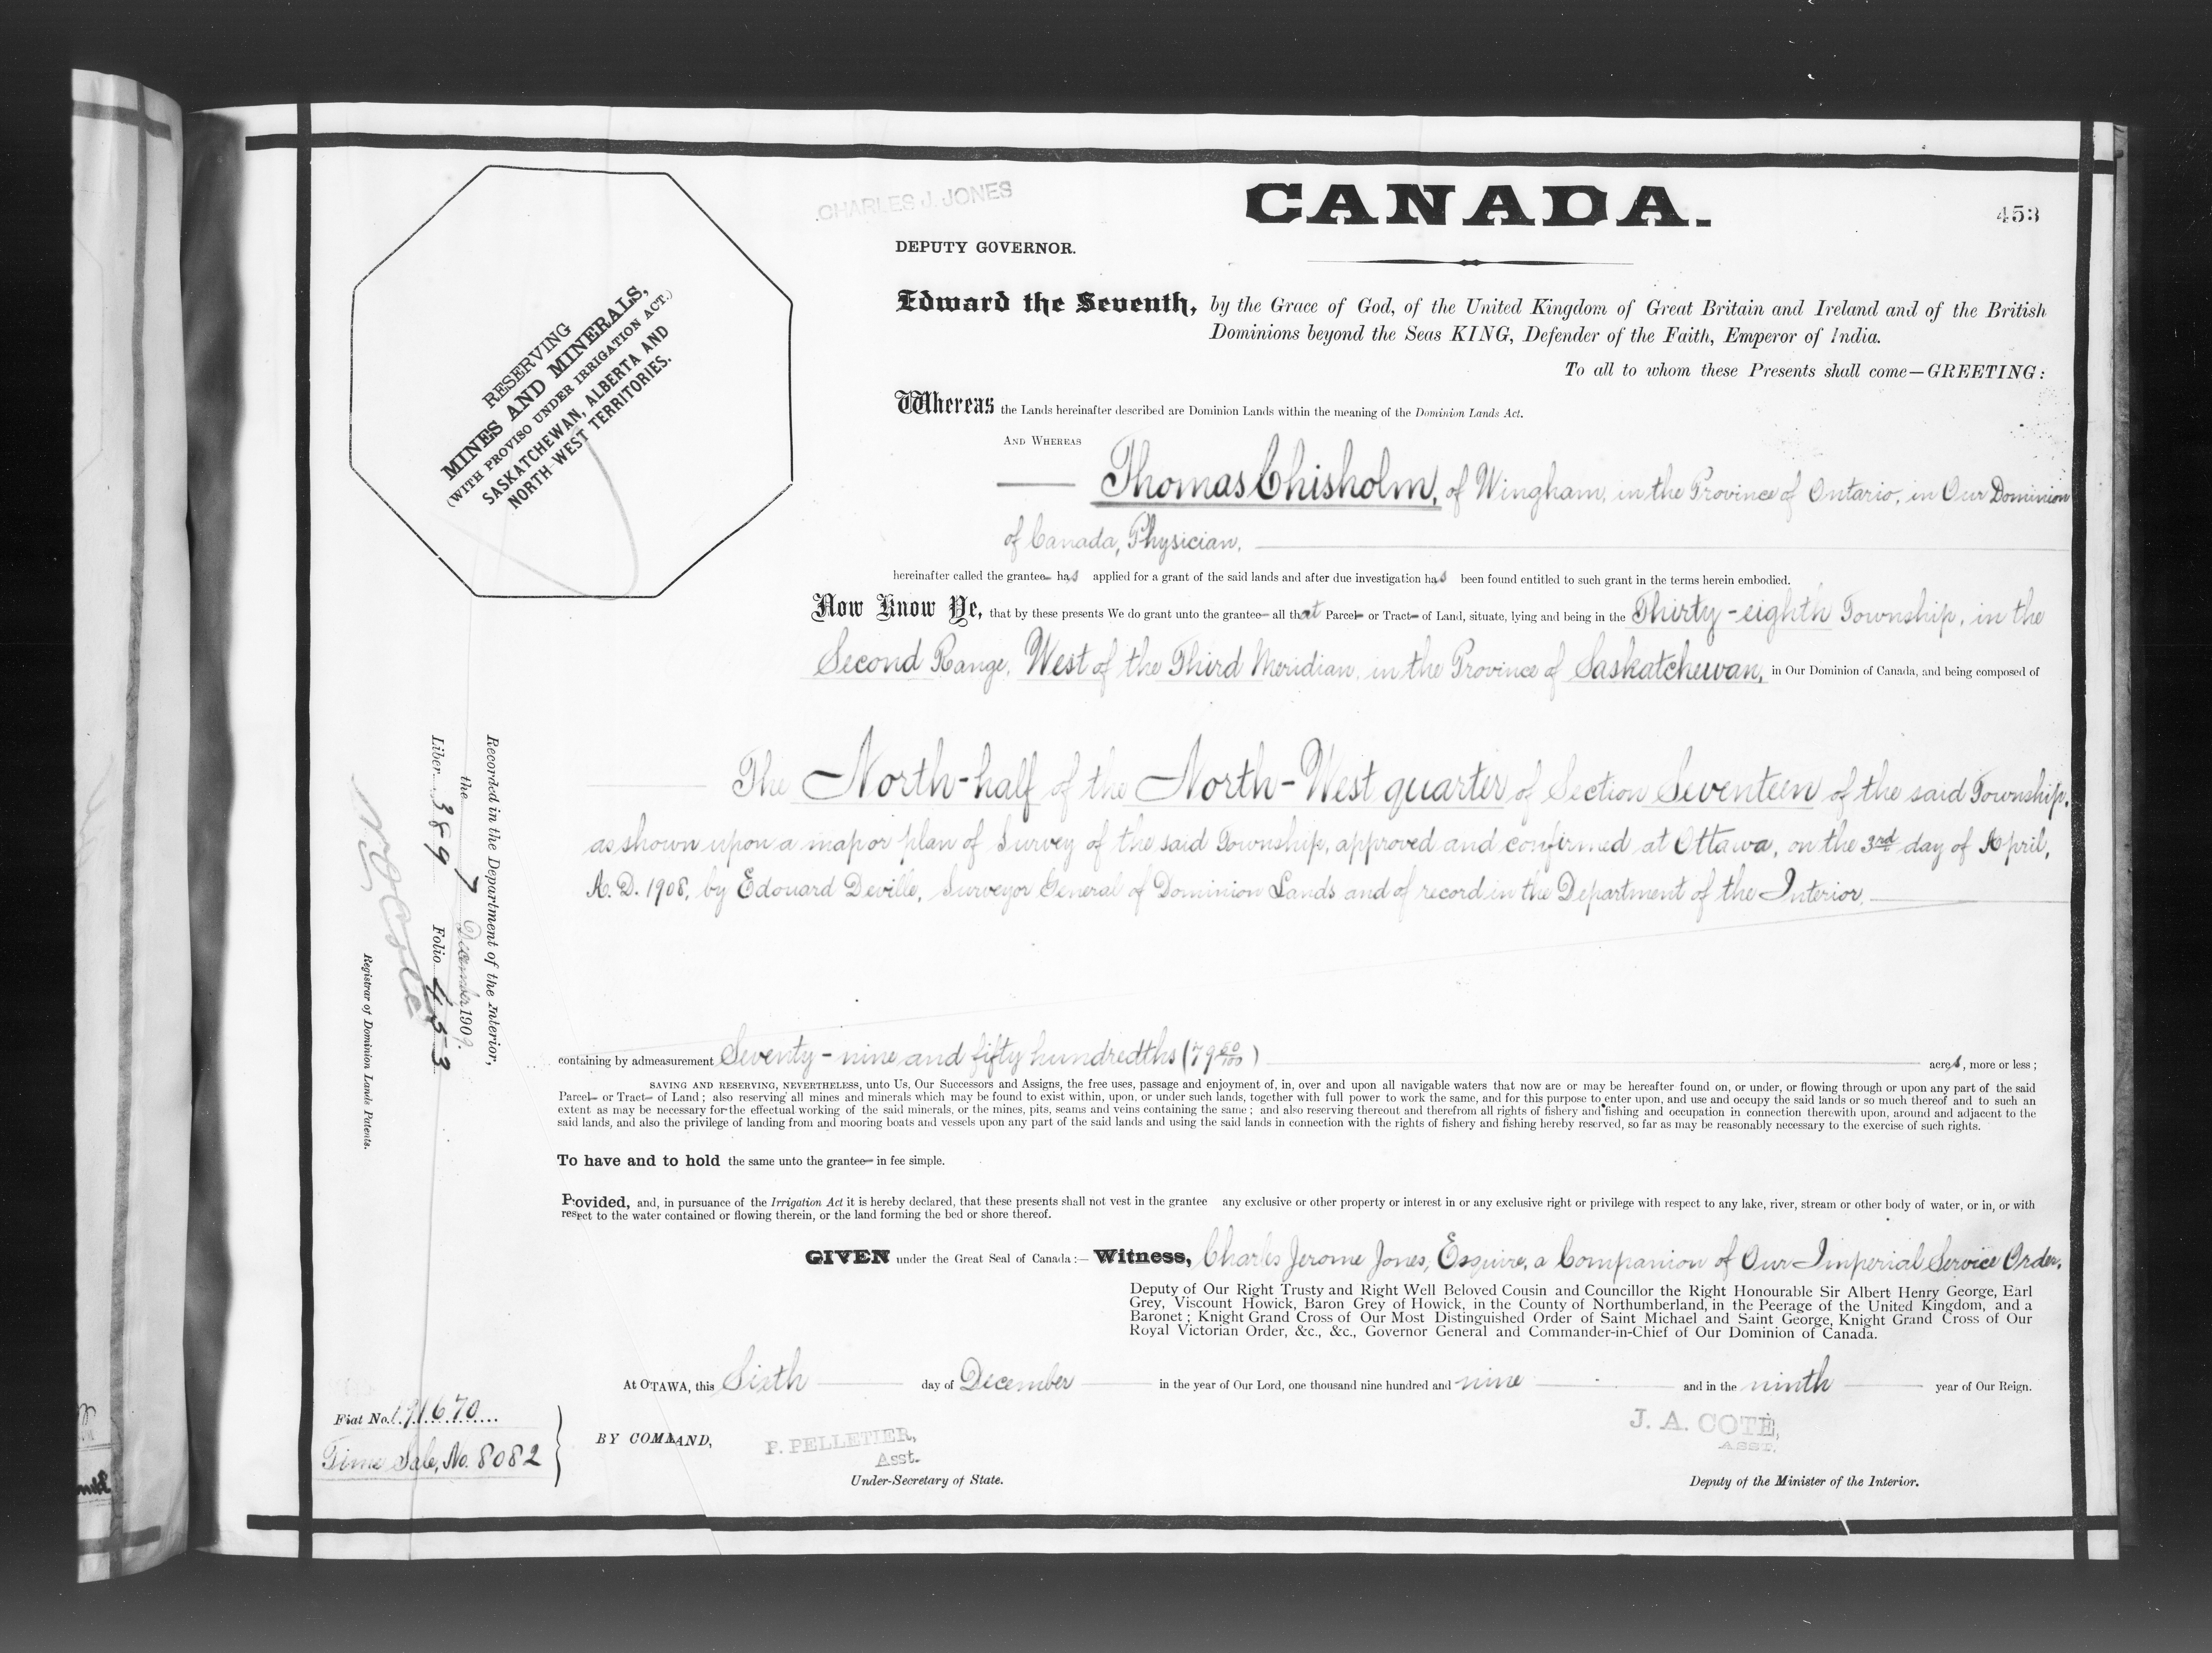 CHARLES J. JONES
CANADA.
453
DEPUTY GOVERNOR.
RESERVING
MINES AND MINERALS,
(WITH PROVISO UNDER IRRIGATION ACT.)
SASKATCHEWAN, ALBERTA AND
NORTH-WEST TERRITORIES.
Edward the Seventh, by the Grace of God, of the United Kingdom of Great Britain and Ireland and of the British
Dominions beyond the Seas KING, Defender of the Faith, Emperor of India.
To all to whom these Presents shall come—GREETING:
Whereas the Lands hereinafter described are Dominion Lands within the meaning of the Dominion Lands Act.
AND WHEREAS
Thomas Chisholm, of Wingham, in the Province of Ontario, in Our Dominion
of Canada, Physician.
hereinafter called the grantee has applied for a grant of the said lands and after due investigation has been found entitled to such grant in the terms herein embodied.
Now Know Ye, that by these presents We do grant unto the grantee all that Parcel or Tract of Land, situate, lying and being in the Thirty-eighth Township, in the
Second Range, West of the Third Meridian, in the Province of Saskatchewan, in Our Dominion of Canada, and being composed of
The North-half of the North-West quarter of Section Seventeen of the said Township,
as shown upon a map or plan of Survey of the said Township, approved and confirmed at Ottawa, on the 3rd day of April,
A. D. 1908, by Edouard Deville, Surveyor General of Dominion Lands and of record in the Department of the Interior.
Recorded in the Department of the Interior,
the 7 December 1909.
Liber 389 Folio 453
Registrar of Dominion Lands Patents.
containing by admeasurement Seventy-nine and fifty hundredths (79 50/100) acres, more or less;
SAVING AND RESERVING, NEVERTHELESS, unto Us, Our Successors and Assigns, the free uses, passage and enjoyment of, in, over and upon all navigable waters that now are or may be hereafter found on, or under, or flowing through or upon any part of the said
Parcel or Tract of Land; also reserving all mines and minerals which may be found to exist within, upon, or under such lands, together with full power to work the same, and for this purpose to enter upon, and use and occupy the said lands or so much thereof and to such an
extent as may be necessary for the effectual working of the said minerals, or the mines, pits, seams and veins containing the same; and also reserving thereout and therefrom all rights of fishery and fishing and occupation in connection therewith upon, around and adjacent to the
said lands, and also the privilege of landing from and mooring boats and vessels upon any part of the said lands and using the said lands in connection with the rights of fishery and fishing hereby reserved, so far as may be reasonably necessary to the exercise of such rights.
To have and to hold the same unto the grantee in fee simple.
Provided, and, in pursuance of the Irrigation Act it is hereby declared, that these presents shall not vest in the grantee any exclusive or other property or interest in or any exclusive right or privilege with respect to any lake, river, stream or other body of water, or in, or with
respet to the water contained or flowing therein, or the land forming the bed or shore thereof.
GIVEN under the Great Seal of Canada:— Witness, Charles Jerome Jones, Esquire, a Companion of Our Imperial Service Order,
Deputy of Our Right Trusty and Right Well Beloved Cousin and Councillor the Right Honourable Sir Albert Henry George, Earl
Grey, Viscount Howick, Baron Grey of Howick, in the County of Northumberland, in the Peerage of the United Kingdom, and a
Baronet; Knight Grand Cross of Our Most Distinguished Order of Saint Michael and Saint George, Knight Grand Cross of Our
Royal Victorian Order, &c., &c., Governor General and Commander-in-Chief of Our Dominion of Canada.
At OTAWA, this Sixth day of December in the year of Our Lord, one thousand nine hundred and nine and in the ninth year of Our Reign.
Fiat No. 191670
Time Sale, No. 8082
BY COMMAND,
P. PELLETIER,
Asst.
Under-Secretary of State.
J. A. COTÉ,
ASST.
Deputy of the Minister of the Interior.